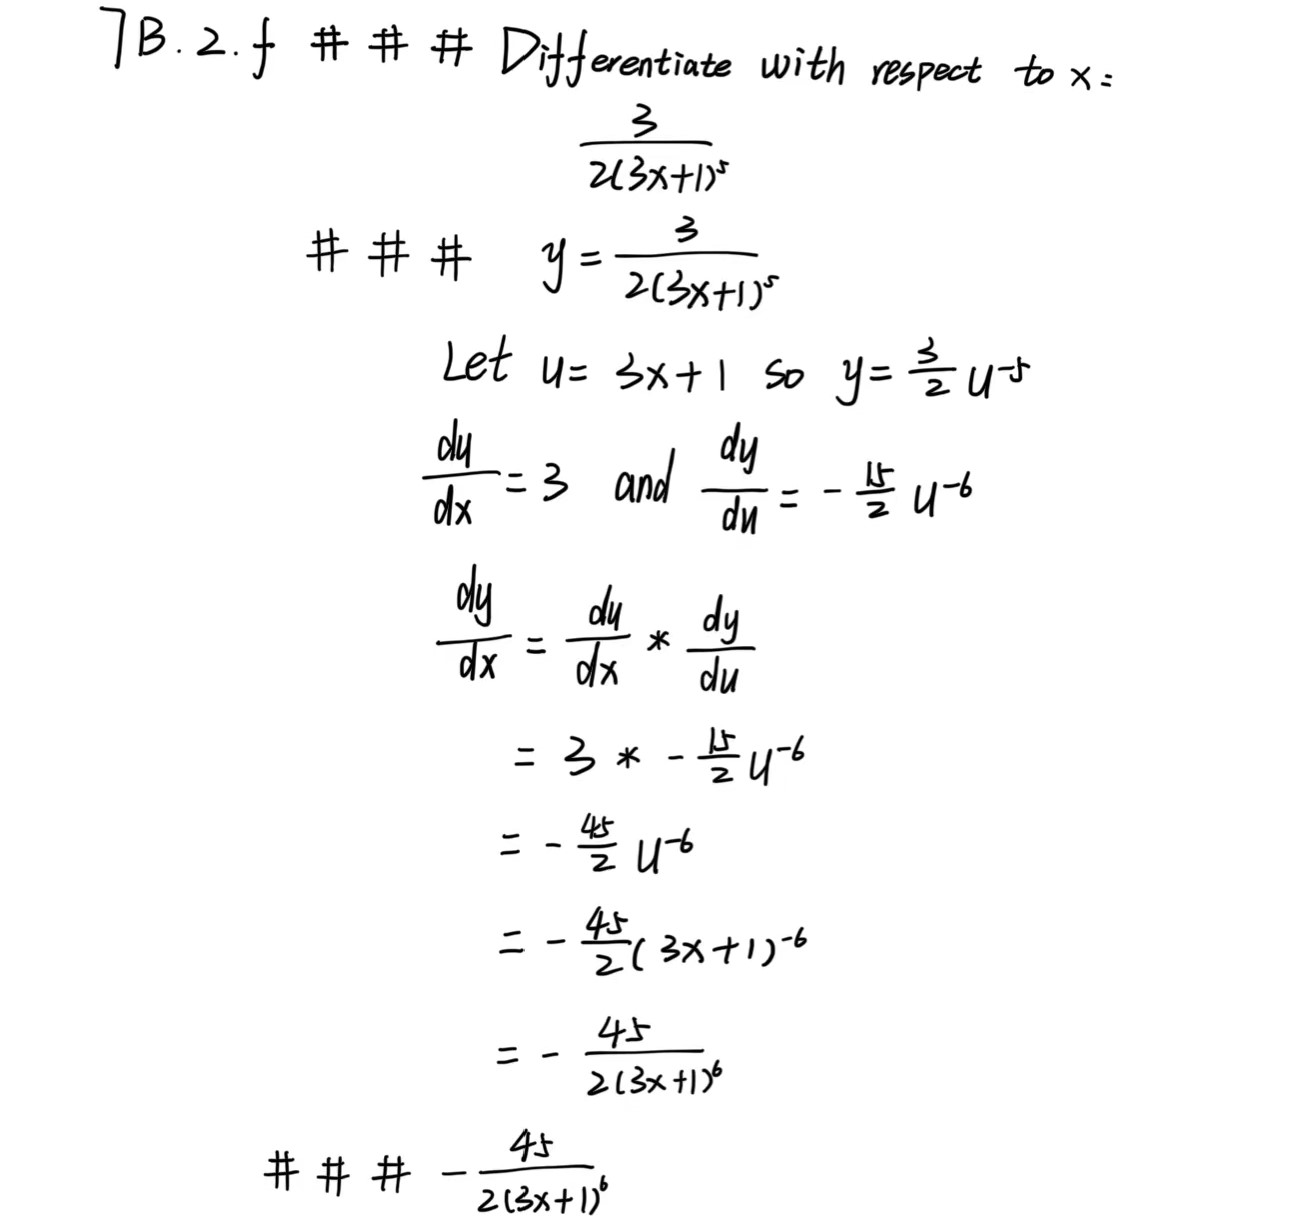 7B.2.f # # # Differentiate with respect to x:
\frac{3}{2(3x+1)^5}
# # # y = \frac{3}{2(3x+1)^5}
Let u = 3x+1 so y = \frac{3}{2} u^{-5}
\frac{du}{dx} = 3 and \frac{dy}{du} = -\frac{15}{2} u^{-6}
\frac{dy}{dx} = \frac{du}{dx} * \frac{dy}{du}
= 3 * -\frac{15}{2} u^{-6}
= -\frac{45}{2} u^{-6}
= -\frac{45}{2} (3x+1)^{-6}
= -\frac{45}{2(3x+1)^6}
# # # -\frac{45}{2(3x+1)^6}